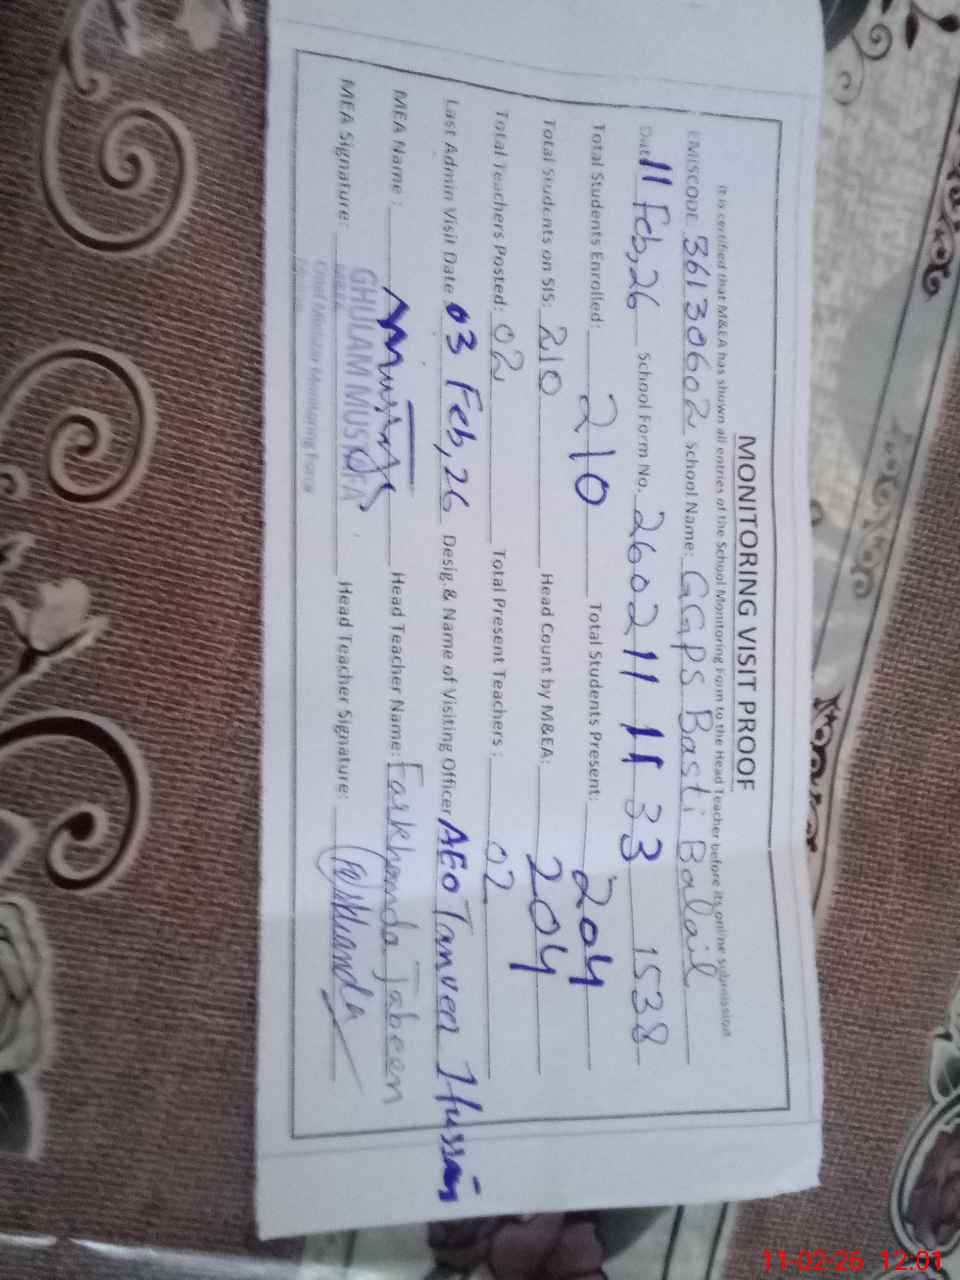 MONITORING VISIT PROOF
It is certified that M&EA has shown all entries of the School Monitoring Form to the Head Teacher before its online submission
EMISCODE 36130602 School Name: GGPS Basti Balail
Date 11 Feb, 26 School Form No. 260211 11 33 1538
Total Students Enrolled: 210 Total Students Present: 204
Total Students on SIS: 210 Head Count by M&EA: 204
Total Teachers Posted: 02 Total Present Teachers : 02
Last Admin Visit Date 03 Feb, 26 Desig.& Name of Visiting Officer AEO Tanveer Hussain
MEA Name : Head Teacher Name: Farkhanda Jabeen
MEA Signature: GHULAM MUSTAFA Head Teacher Signature: Farkhanda
Chief Minister Monitoring Force
11-02-26 12:01